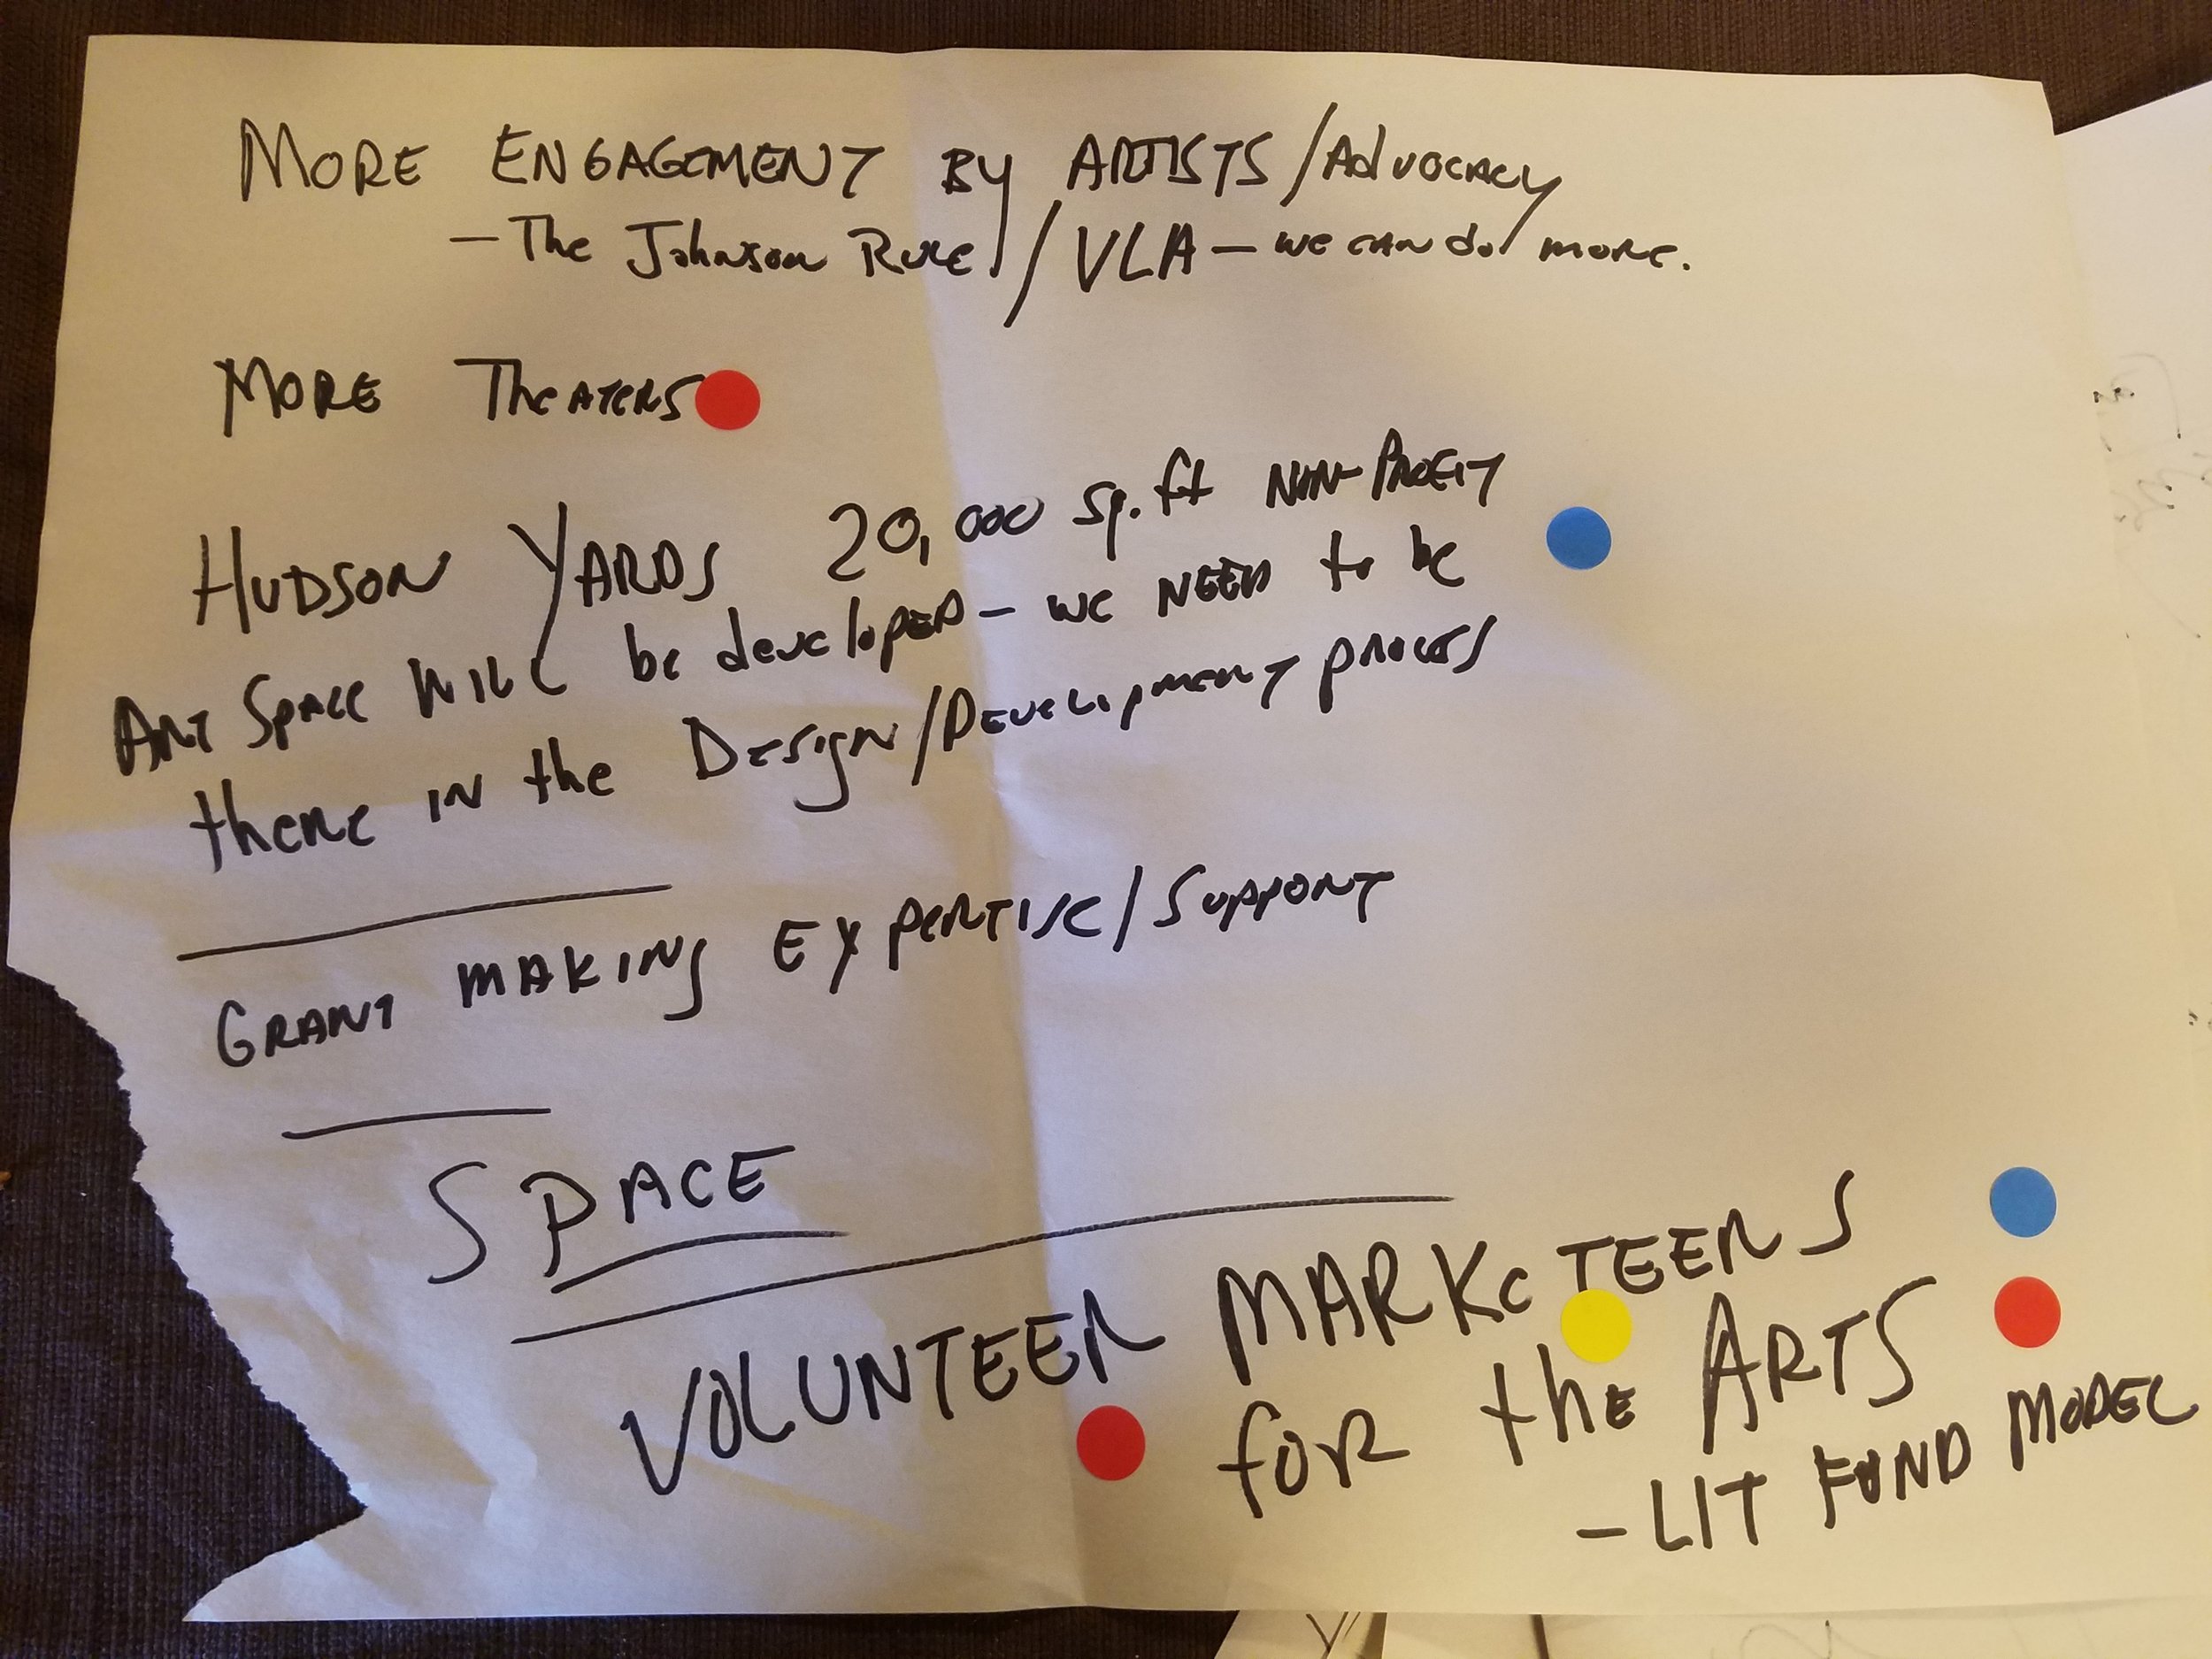 MORE ENGAGEMENT BY ARTISTS/Advocacy
- The Johnson Rule / VLA - we can do more.
MORE TheATERS
HUDSON YARDS 20,000 sq. ft NON-PROFIT
ART SpACE WILL be developED - we NEED to be
there IN the Design/Development process
GRANT MAKING EXPERTISE/SUPPORT
SPACE
VOLUNTEER MARKeTEERS
for the ARTS
- LIT FUND MODEL